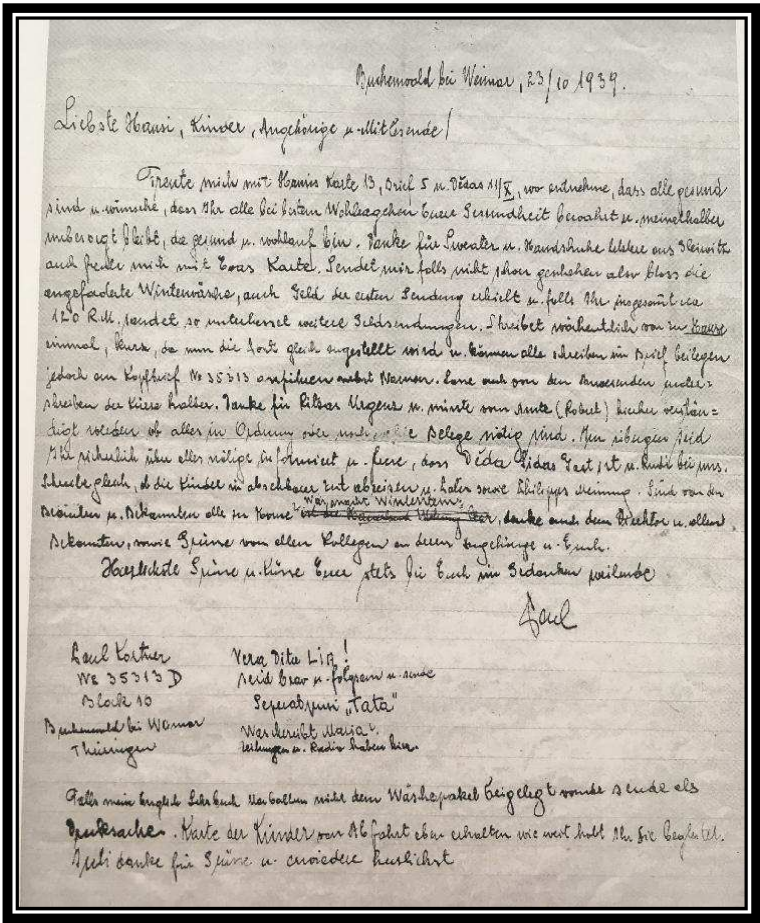 Buchenwald bei Weimar, 23/10 1939.
Liebste Hansi, Kinder, Angehörige u. Mitlesende!
Freute mich mit Hannis Karte 13, Brief 5 u. Dědas 11/X, wo entnehme, dass alle gesund
sind u. wünsche, dass Ihr alle bei bestem Wohlergehen Euere Gesundheit bewahrt u. meinethalber
unbesorgt bleibt, da gesund u. wohlauf bin. Danke für Sweater u. Handschuhe letztere aus Gleiwitz
auch freute mich mit Evas Karte. Sendet mir falls nicht schon geschehen also bloss die
angeforderte Winterwäsche, auch Geld der ersten Sendung erhielt u. falls Ihr insgesamt ca
120 R.M. sendet so unterlasset weitere Geldsendungen. Schreibet wöchentlich von zu Hause
einmal, kurz, da nun die Post gleich zugestellt wird u. können alle schreiben im Brief beilegen
jedoch am Kopfbrief No 35313 anführen nebst Namen. Lasse auch von den Anwesenden unter=
schreiben der Kürze halber. Danke für Urgenz u. müsste vom Amte (Robert) hierher verstän=
digt werden ob alles in Ordnung oder noch Belege nötig sind. Im übrigen seid
Ihr sicherlich über alles nötige informiert u. freue, dass Děda Lidas Gast ist u. Rudi bei uns.
Schreibe gleich, ob die Kinder in absehbarer Zeit abreisen u. sowie Philipps Meinung. Sind von den
Beamten u. Bekannten alle zu Hause Was macht Winterstein?, danke auch dem Direktor u. allen
Bekannten, sowie Grüsse von allen Kollegen an deren Angehörige u. Euch.
Herzlichste Grüsse u. Küsse Euer stets bei Euch in Gedanken weilende
Paul
Paul Kortner
No 35313 D
Block 10
Buchenwald bei Weimar
Thüringen
Vera Dita Lia!
seid brav u. folgsam u. sende
"Tata"
Was schreibt Maria?
Zeitungen u. Radio haben hier.
Falls mein English Lehrbuch nicht dem Wäschepaket beigelegt wurde sende als
Drucksache. Karte der Kinder von Abfahrt eben erhalten wie weit habt Ihr Sie begleitet.
danke für Grüsse u. erwiedere herzlichst